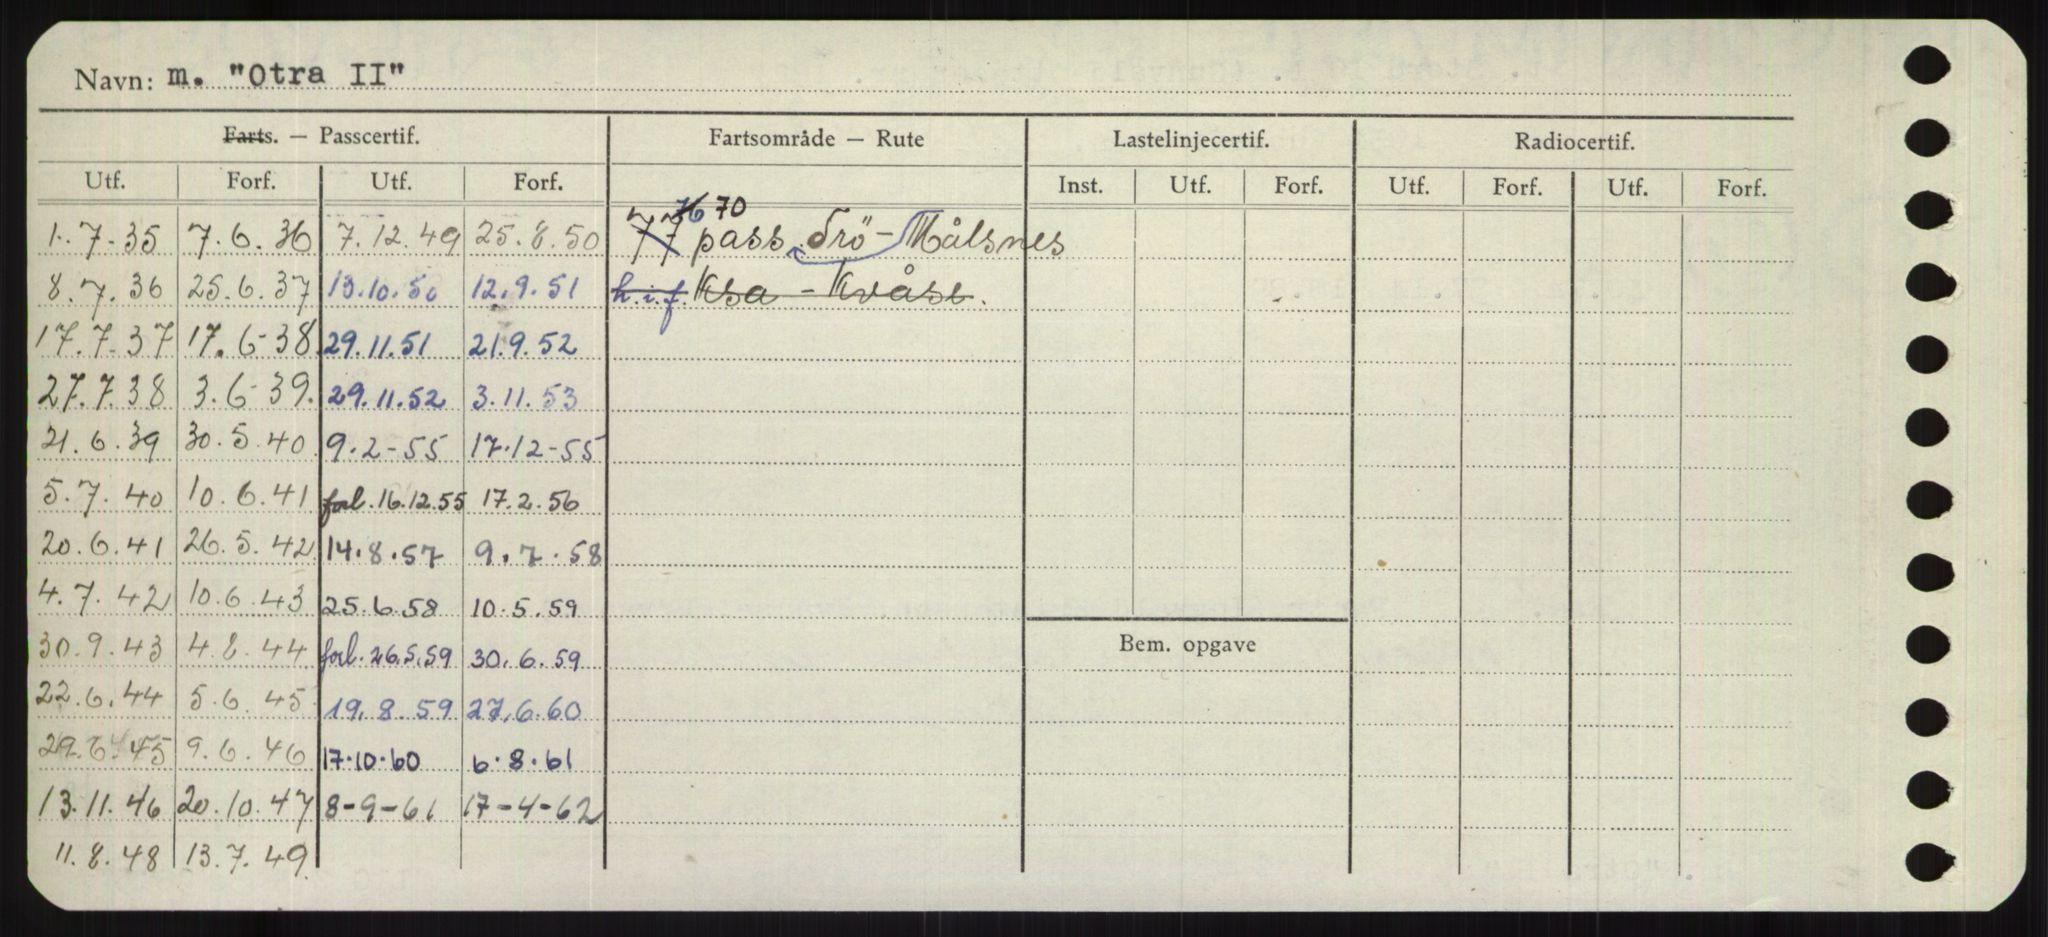 Navn: m. "Otra II"
Farts. — Passcertif. Fartsområde — Rute Lastelinjecertif. Radiocertif.
Utf. Forf. Utf. Forf. Inst. Utf. Forf. Utf. Forf. Utf. Forf.
76 70
1.7-35 7.6.36 7.12.49 25.8.50 77 pass Trö - Målsnes
8.7.36 25.6.37 13.10.50 12.9.51 h.i.f. Ksa - Kvåse.
17.7-37 17.6-38 29.11.51 21.9.52
27.7.38 3.6-39. 29.11.52 3.11.53
21.6.39 30.5.40 9.2-55 17.12-55
5.7.40 10.6.41 forl. 16.12.55 17.2.56
20.6.41 26.5.42 14.8.57 9.7.58
4.7.42 10.6.43 25.6.58 10.5.59
30.9.43 4.8.44 forl. 26.5.59 30.6.59
Bem. opgave
22.6.44 5.6.45 19.8.59 27.6.60
29.6.45 9.6.46 17.10.60 6.8.61
13.11.46 20.10.47 8-9-61 17-4-62
11.8.48 13.7.49